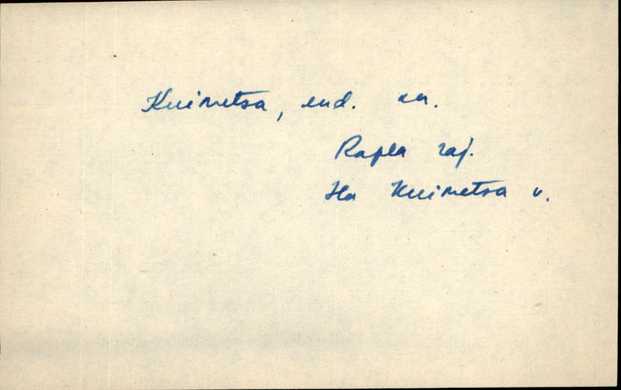 Kuimetsa, end. as.
Rapla raj.
Ha Kuimetsa v.